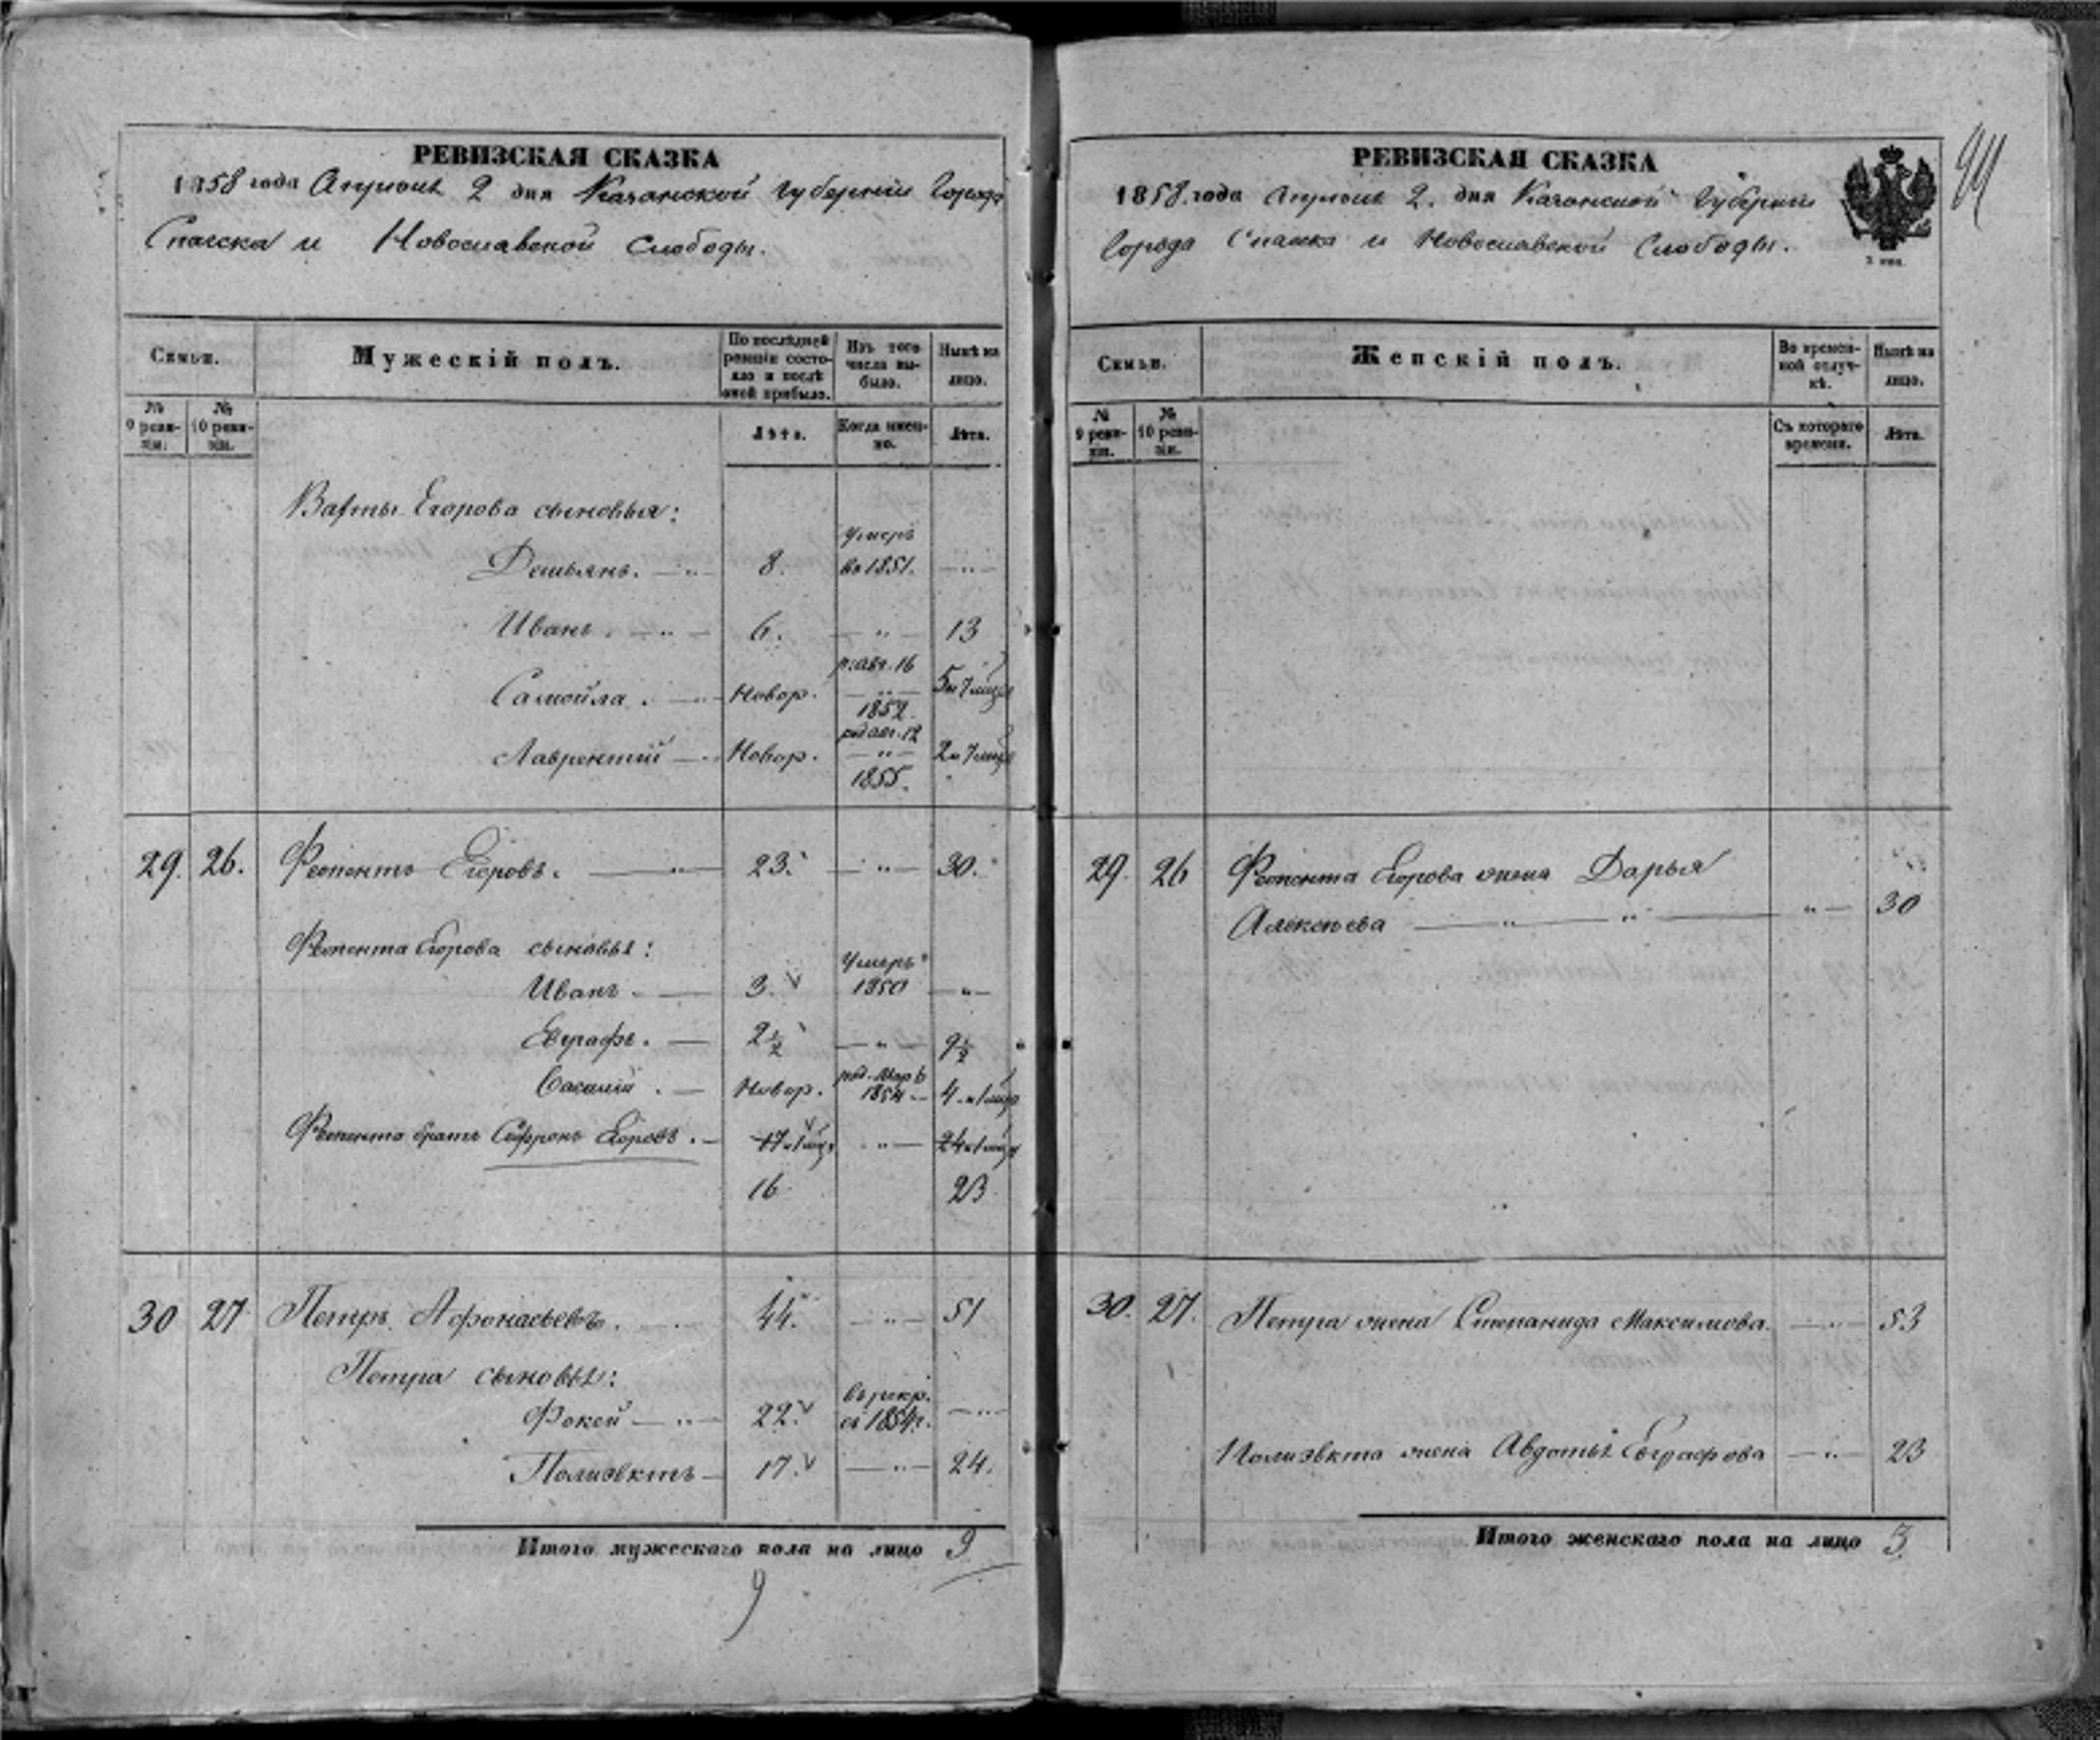 РЕВИЗСКАЯ СКАЗКА
1858 года Апреля 2 дня Казанской Губернии Города
Спасска и Новославской Слободы.
Семьи.
Мужескій полъ.
По послѣдней ревизіи состояло и послѣ оной прибыло.
Изъ того числа выбыло.
Нынѣ на лицо.
№ 9 ревизіи.
№ 10 ревизіи.
Лѣта.
Когда именно.
Лѣта.
Егорова сыновья:
Демьянъ. 8. Умеръ въ 1851.
Иванъ. 6. 13
Самойла. Новор. р. авг. 16 1852 5 и 7 мцъ
Лаврентій Новор. род авг. 12 1855. 2 и 7 мцъ
29. 26. Феопентъ Егоровъ. 23. 30.
Феопента Егорова сыновья:
Иванъ. 3. Умеръ 1850
Евграфъ. 2½ 9½
Василій. Новор. род. Мар 6 1854 4 и 1 мцъ
Феопента братъ Софронъ Егоровъ. 17 и 1 мцъ 24 и 1 мцъ
16 23
30 27 Петръ Афонасьевъ. 44. 51
Петра сыновья:
Фокей 22. въ рекр. съ 1854 г.
Полиэвктъ 17. 24.
Итого мужескаго пола на лицо 9
9
РЕВИЗСКАЯ СКАЗКА
1858 года Апреля 2. дня Казанской Губерніи
Города Спасска и Новославской Слободы.
Семьи.
Женскій полъ.
Во временной отлучкѣ.
Нынѣ на лицо.
№ 9 ревизіи.
№ 10 ревизіи.
Съ котораго времени.
Лѣта.
29. 26 Феопента Егорова жена Дарья
Алексѣева 30
30. 27. Петра жена Степанида Максимова. 53
Полиэвкта жена Авдотья Евграфова 23
Итого женскаго пола на лицо 3.